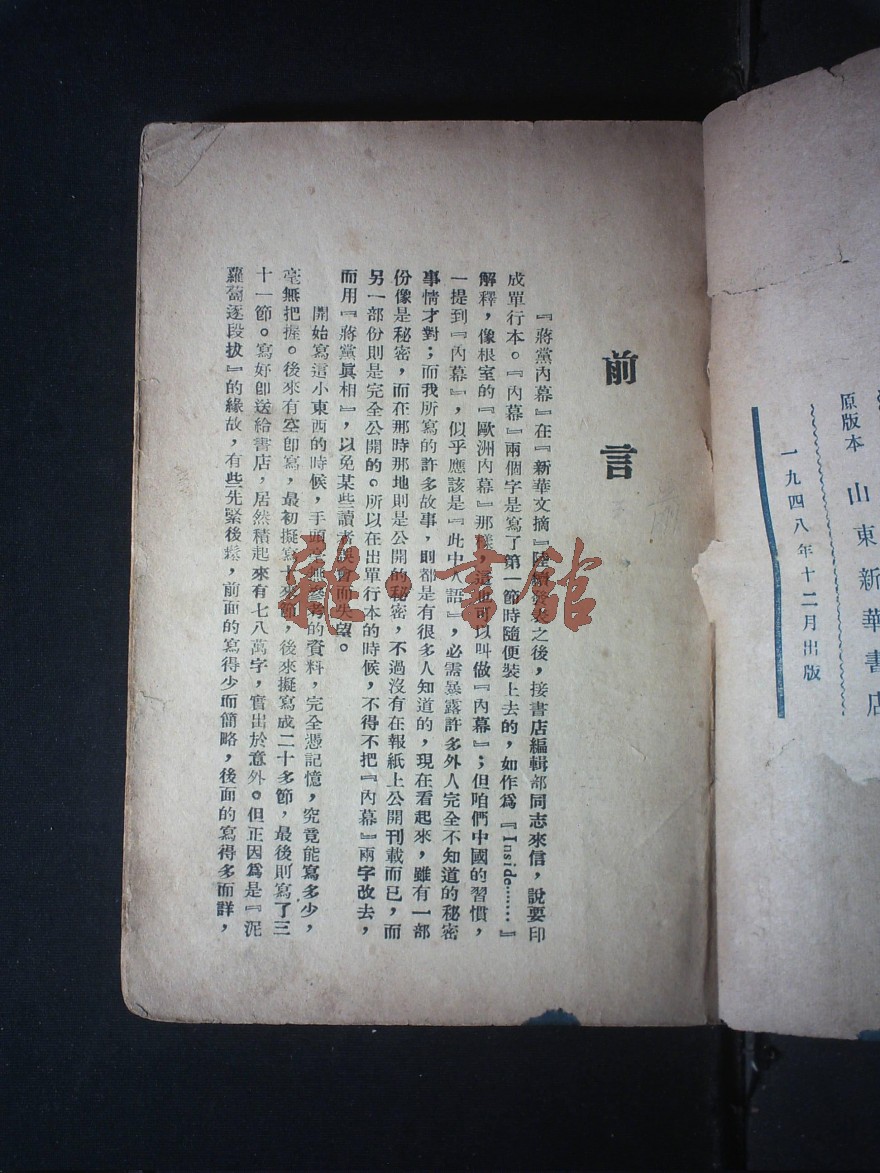 前言
『蔣黨內幕』在『新華文摘』陸續發表之後，接書店編輯部同志來信，說要印
成單行本。『內幕』兩個字是寫了第一節時隨便裝上去的，如作爲『Inside………』
解釋，像根室的『歐洲內幕』那樣，這也可以叫做『內幕』；但咱們中國的習慣，
一提到『內幕』，似乎應該是『此中人語』，必需暴露許多外人完全不知道的秘密
事情才對；而我所寫的許多故事，則都是有很多人知道的，現在看起來，雖有一部
份像是秘密，而在那時那地則是公開的秘密，不過沒有在報紙上公開刊載而已，而
另一部份則是完全公開的。所以在出單行本的時候，不得不把『內幕』兩字改去，
而用『蔣黨眞相』，以免某些讀者誤會而失望。
開始寫這小東西的時候，手頭毫無參考的資料，完全憑記憶，究竟能寫多少，
毫無把握。後來有空卽寫，最初擬寫十來節，後來擬寫成二十多節，最後則寫了三
十一節。寫好卽送給書店，居然積起來有七八萬字，實出於意外。但正因爲是『泥
蘿蔔逐段拔』的緣故，有些先緊後鬆，前面的寫得少而簡略，後面的寫得多而詳，
原版本 山東新華書店
一九四八年十二月出版
雜·書館